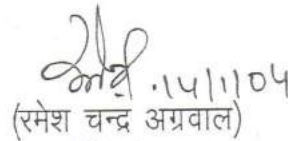 14/1/04
(रमेश चन्द्र अग्रवाल)